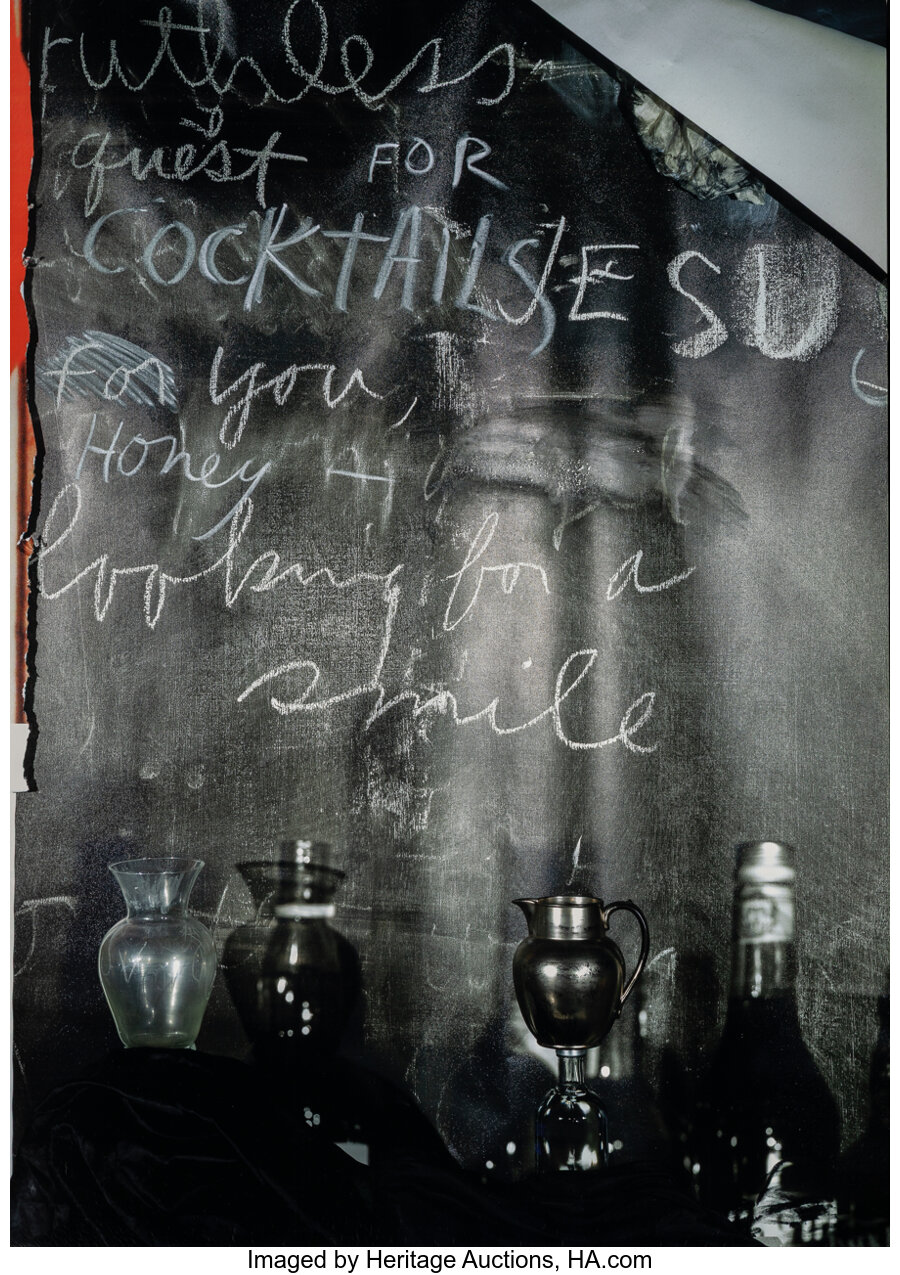 ruthless
quest FOR
COCKTAILS JESU
for you,
Honey
looking for a
smile
Imaged by Heritage Auctions, HA.com